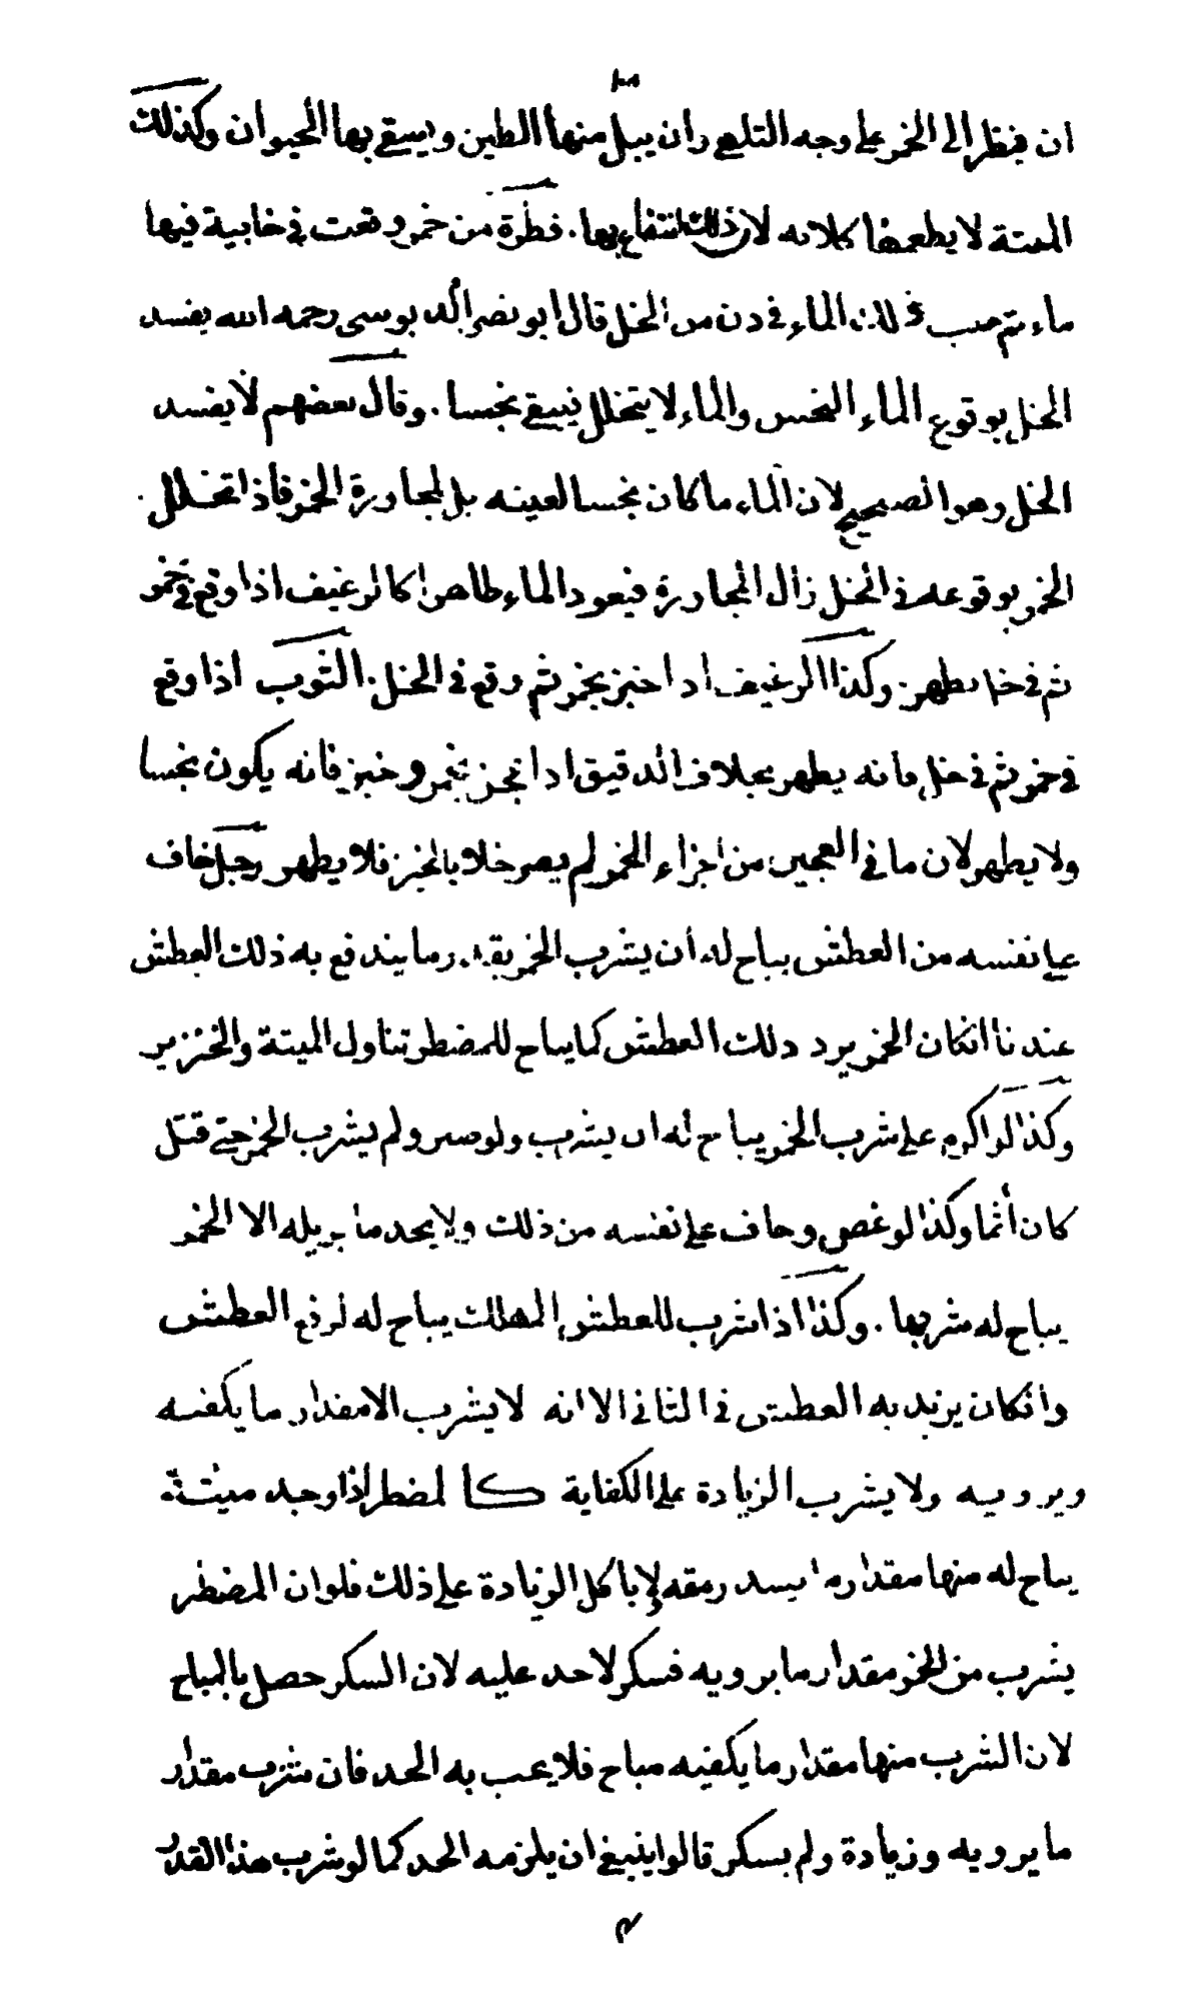 ان ينظر الى الخمر على وجه التلهى وان يبل منها الطين ويسقى بها الحيوان وكذلك
الميتة لا يطعمها كلابه لان ذلك انتفاع بها . قطرة من خمر وقعت فى خابية فيها
ماء ثم صب ذلك الماء فى دن من الخل قال ابو نصر الدبوسى رحمه الله يفسد
الخل بوقوع الماء النجس والماء لا يتخلل فيبقى نجسا . وقال بعضهم لا يفسد
الخل وهو الصحيح لان الماء ما كان نجسا لعينه بل لمجاورة الخمر فاذا تخلل .
الخمر بوقوعه فى الخل زال المجاورة فيعود الماء طاهرا كالرغيف اذا وقع فى خمر
ثم فى خل يطهر وكذا الرغيف اذا خبز بخمر ثم وقع فى الخل . الثوب اذا وقع
فى خمر ثم فى خل فانه يطهر بخلاف الدقيق اذا عجن بخمر وخبز فانه يكون نجسا
ولا يطهر لان ما فى العجين من اجزاء الخمر لم يصر خلا بالخبز فلا يطهر رجل خاف
على نفسه من العطش يباح له ان يشرب الخمر بقدر ما يندفع به ذلك العطش
عندنا انكان الخمر يرد ذلك العطش كما يباح للمضطر تناول الميتة والخنزير
وكذا لو اكره على شرب الخمر يباح له ان يشرب ولو صبر ولم يشرب الخمر حتى قتل
كان أثما وكذا لو غص وخاف على نفسه من ذلك ولا يجد ما يزيله الا الخمر
يباح له شربها . وكذا اذا شرب للعطش المهلك يباح له لرفع العطش
وانكان يزيد به العطش فى الثانى الا انه لا يشرب الا مقدار ما يكفيه
ويرويه ولا يشرب الزيادة على الكفاية كالمضطر اذا وجد ميتة
يباح له منها مقدار ما يسد رمقه لا ياكل الزيادة على ذلك فلو ان المضطر
يشرب من الخمر مقدار ما يرويه فسكر لا حد عليه لان السكر حصل بالمباح
لان الشرب منها مقدار ما يكفيه مباح فلا يجب به الحد فان شرب مقدار
ما يرويه وزيادة ولم يسكر قالوا ينبغى ان يلزمه الحد كما لو شرب هذا القدر